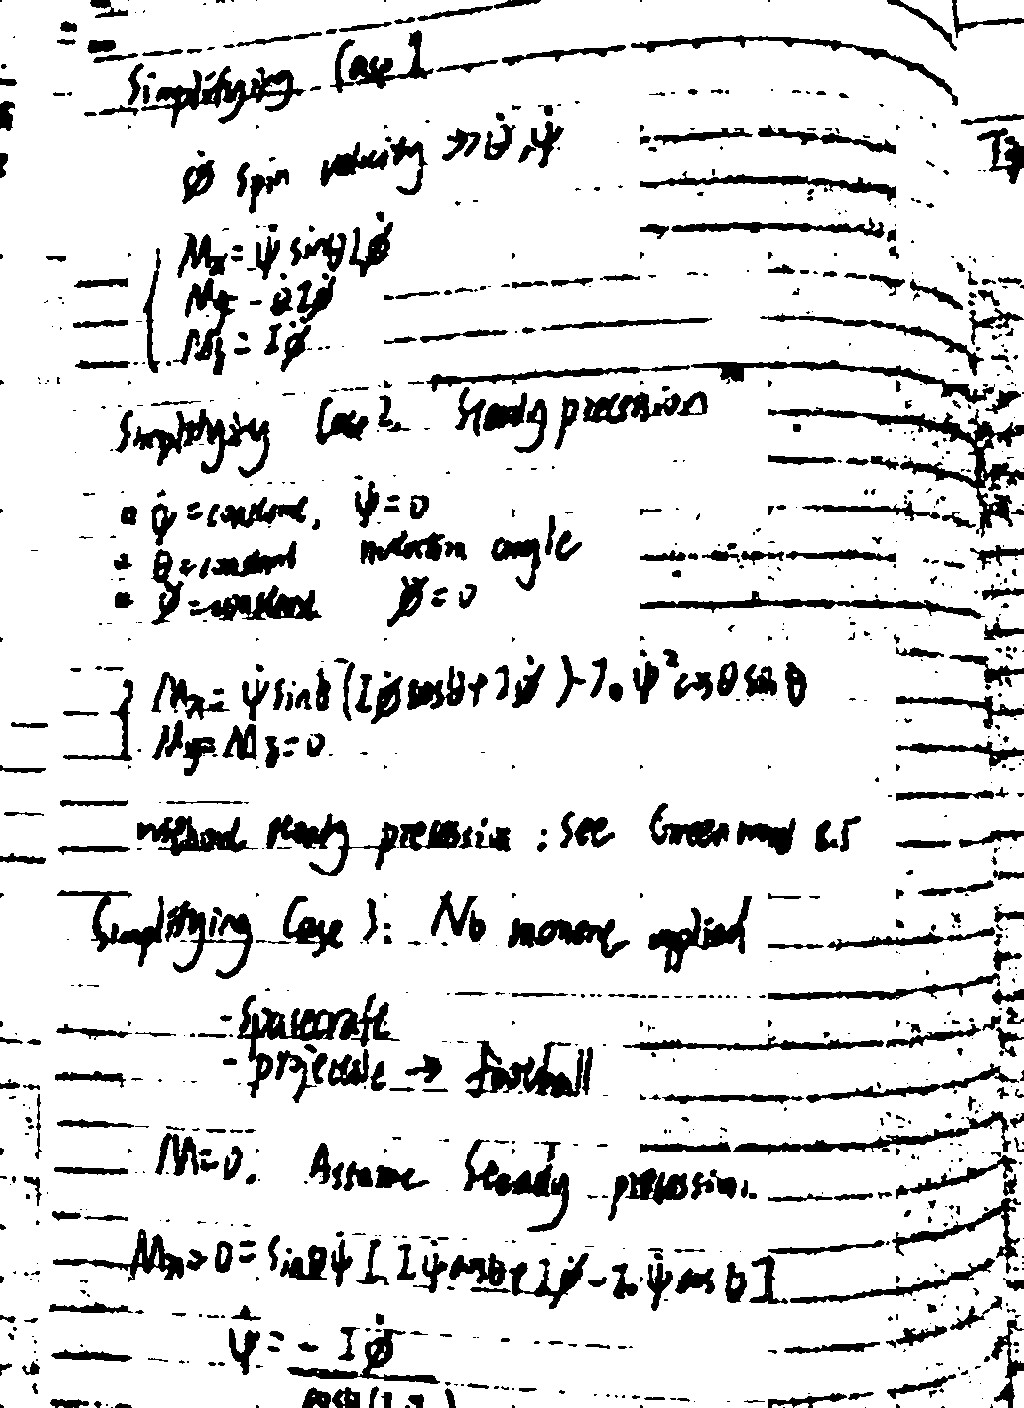 Simplifying Case 1
φ̇ spin velocity >> θ̇, ψ̇
Mx = ψ̇ sinθ I φ̇
My = - θ̇ I φ̇
Mz = I φ̈
Simplifying Case 2. Steady precession
ψ̇ = constant, ψ̈ = 0
θ = constant nutation angle
φ̇ = constant φ̈ = 0
Mx = ψ̇ sinθ (I ψ̇ cosθ + I φ̇) - I₀ ψ̇² cosθ sinθ
My = Mz = 0
steady precession : see Greenwood 8.5
Simplifying Case 3: No moment applied
- Spacecraft
- projectile → football
M=0. Assume Steady precession.
Mx → 0 = sinθ ψ̇ [ I ψ̇ cosθ + I φ̇ - I₀ ψ̇ cosθ ]
ψ̇ = - I φ̇